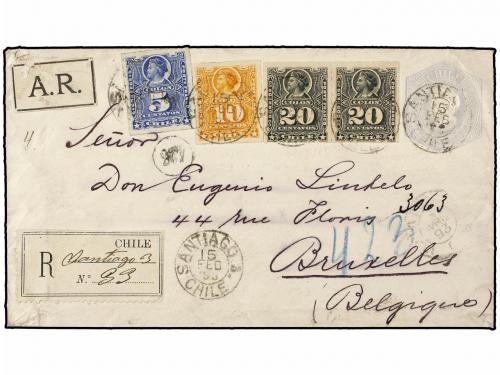 A.R.
COLON
5
CENTAVOS
COLON
10
CENTAVOS
COLON
20
CENTAVOS
COLON
20
CENTAVOS
SANTIAGO
15
CHILE
Señor
Don Eugenio Lindelo
44 rue Floris
3063
423
Bruxelles
(Belgique)
CHILE
R
Santiago 3
N.º 93
SANTIAGO
15
FEB
93
CHILE